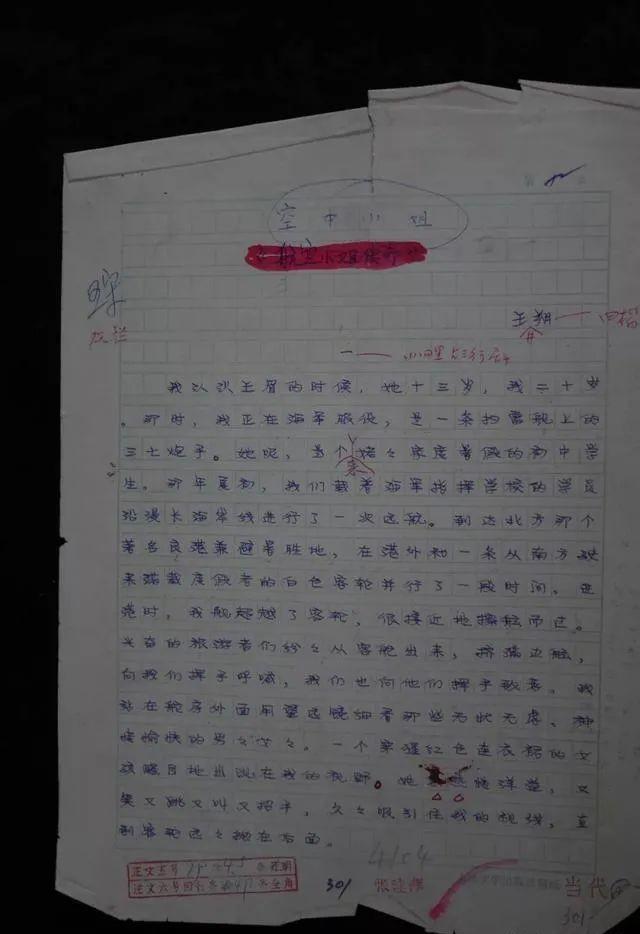 空中小姐
王朔
一
我认识王眉的时候，她十三岁，我二十岁
。那时，我正在海军服役，是一条扫雷舰上的
三七炮手。她呢，是个来姥々家度暑假的初中学
生。那年夏初，我们载着海军指挥学校的学员
沿漫长海岸线进行了一次远航。到达北方那个
著名良港兼避暑胜地，在港外和一条从南方驶
来满载度假者的白色客轮并行了一段时间。进
港时，我舰超越了客轮，很接近地擦舷而过。
兴奋的旅游者们纷々从客舱出来，挤满边舷，
向我们挥手呼喊，我们也向他们挥手致意。我
站在舱房外面用望远镜细看那些无忧无虑、神
情愉快的男々女々。一个穿猩红色连衣裙的女
孩瞩目地出现在我的视野。她热情洋溢，又
笑又跳又叫又招手，久々吸引住我的视线，直
到客轮远々抛在后面。
正文五号
注文六号
301
4104
当代
301